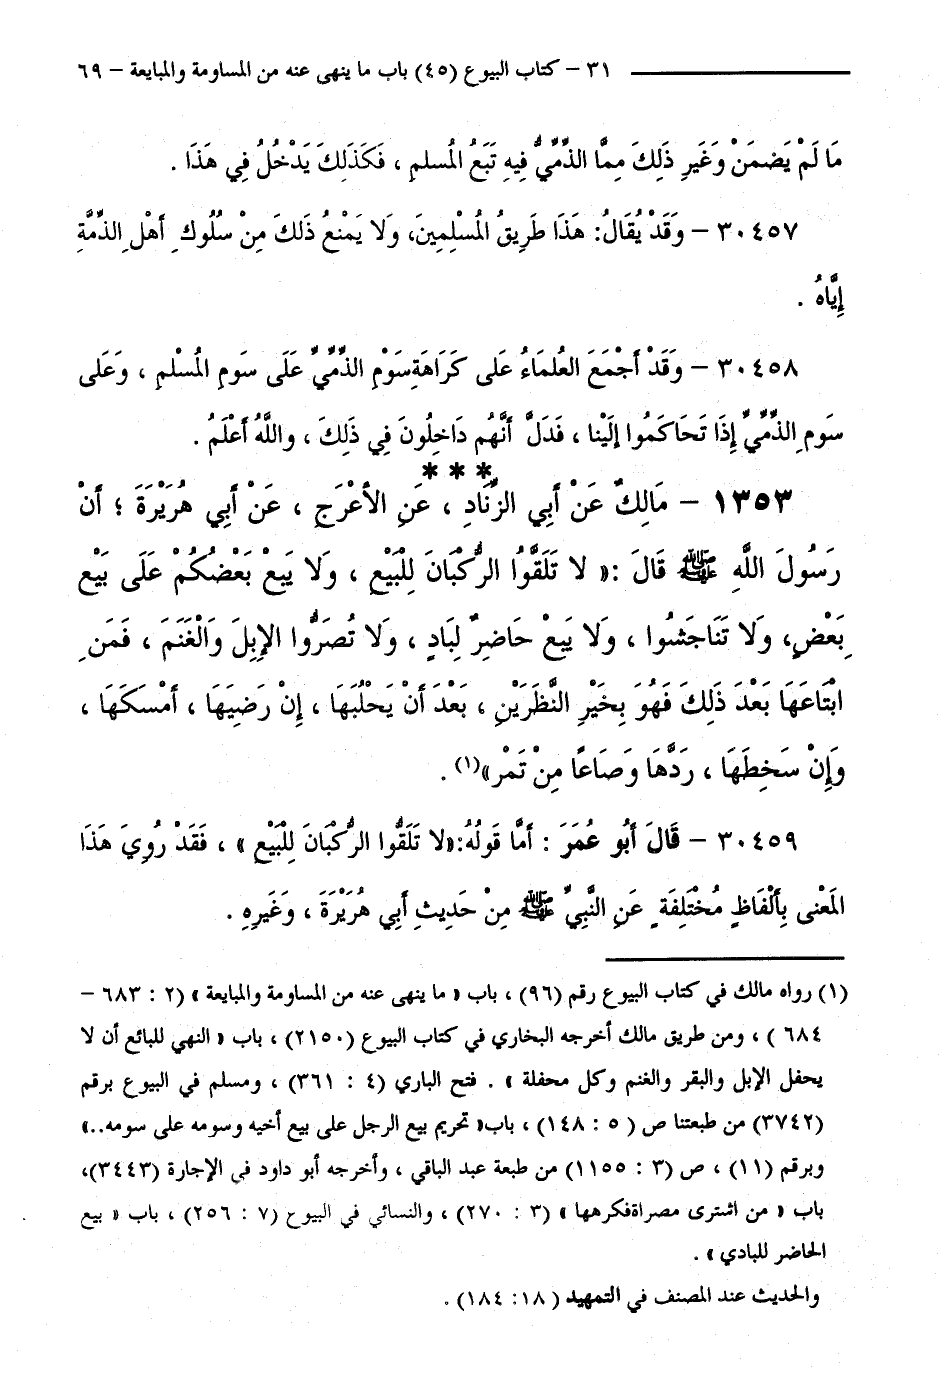 ٣١ – كتاب البيوع (٤٥) باب ما ينهى عنه من المساومة والمبايعة – ٦٩
مَا لَمْ يَضمَنْ وَغَيرِ ذَلِكَ مِمَّا الذِّمِّيُّ فِيهِ تَبَعُ المُسلمِ ، فَكَذَلِكَ يَدْخُلُ فِي هَذَا .
٣٠٤٥٧ – وَقَدْ يُقَالُ: هَذَا طَرِيقُ المُسْلِمِينَ، وَلا يَمْنعُ ذَلكَ مِنْ سُلُوكِ أهْلِ الذِّمَّةِ
إِيَّاهُ .
٣٠٤٥٨ – وَقَدْ أجْمَعَ العُلمَاءُ عَلى كَرَاهَةِ سَوْمِ الذِّمِّيِّ عَلَى سَومِ المُسْلمِ ، وَعَلى
سَومِ الذِّمِّيِّ إِذَا تَحَاكَمُوا إِلَيْنا ، فَدَلَّ أنَّهُم دَاخِلُونَ فِي ذَلكَ ، واللَّهُ أعْلَمُ .
***
١٣٥٣ – مَالِكٌ عَنْ أبِي الزِّنَادِ ، عَنِ الأعْرَجِ ، عَنْ أبِي هُرَيْرَةَ ؛ أنْ
رَسُولَ اللَّهِ ﷺ قَالَ :« لا تَلَقَّوُا الرُّكْبَانَ لِلْبَيْعِ ، وَلا يَبِعْ بَعْضُكُمْ عَلَى بَيْعِ
بَعْضٍ، وَلا تَنَاجَشُوا ، وَلا يَبِعْ حَاضِرٌ لِبَادٍ ، وَلا تُصَرُّوا الإِبِلَ وَالْغَنَمَ ، فَمَنِ
ابْتَاعَهَا بَعْدَ ذَلِكَ فَهُوَ بِخَيْرِ النَّظَرَيْنِ ، بَعْدَ أنْ يَحْلُبَهَا ، إِنْ رَضِيَهَا ، أمْسَكَهَا ،
وَإِنْ سَخِطَهَا ، رَدَّهَا وَصَاعًا مِنْ تَمْر»(١) .
٣٠٤٥٩ – قَالَ أبُو عُمَرَ : أمَّا قَولُهُ:«لا تَلَقُوا الرُّكْبَانَ لِلْبَيْعِ » ، فَقَدْ رُوِيَ هَذَا
المَعْنى بِألْفَاظٍ مُخْتَلِفَةٍ عَنِ النَّبِيِّ ﷺ مِنْ حَدِيثِ أبِي هُرَيْرَةَ ، وَغَيرِهِ .
(١) رواه مالك في كتاب البيوع رقم (٩٦) ، باب « ما ينهى عنه من المساومة والمبايعة » (٢ : ٦٨٣ –
٦٨٤ ) ، ومن طريق مالك أخرجه البخاري في كتاب البيوع (٢١٥٠) ، باب « النهي للبائع أن لا
يحفل الإبل والبقر والغنم وكل محفلة » . فتح الباري (٤ : ٣٦١) ، ومسلم في البيوع برقم
(٣٧٤٢) من طبعتنا ص ( ٥ : ١٤٨) ، باب« تحريم بيع الرجل على بيع أخيه وسومه على سومه..»
وبرقم (١١) ، ص (٣ : ١١٥٥) من طبعة عبد الباقي ، وأخرجه أبو داود في الإجارة (٣٤٤٣)،
باب « من اشترى مصراةفكرهها » (٣ : ٢٧٠) ، والنسائي في البيوع (٧ : ٢٥٦) ، باب « بيع
الحاضر للبادي » .
والحديث عند المصنف في التمهيد ( ١٨: ١٨٤) .